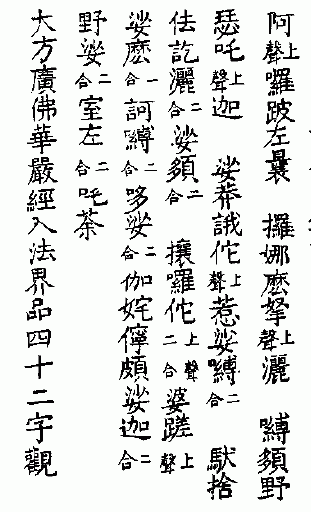 阿上聲囉跛左曩 攞娜麼拏上聲灑 嚩須野
瑟吒上聲迦 娑莽誐佗上聲惹娑嚩二合 馱捨
佉訖灑二合 娑須二合 攘囉佗上聲二合 婆蹉上聲
娑麼一合訶嚩二合哆娑二合伽姹儜頗娑迦二合
野娑二合室左二合吒荼
大方廣佛華嚴經入法界品四十二字觀